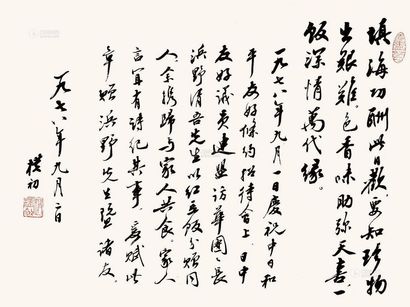 填海功酬此日歡。要知珍物
出艱難。色香味助弥天喜。一
飯深情萬代緣。
一九七八年九月一日慶祝中日和
平友好條約招待會上。日中
友好議員連盟訪華團團長
浜野清吾先生以红豆飯分贈同
人。余携歸与家人共食。家人
言宜有詩紀其事。爰賦此
章贈浜野先生暨諸友。
一九七八年九月二日
樸初